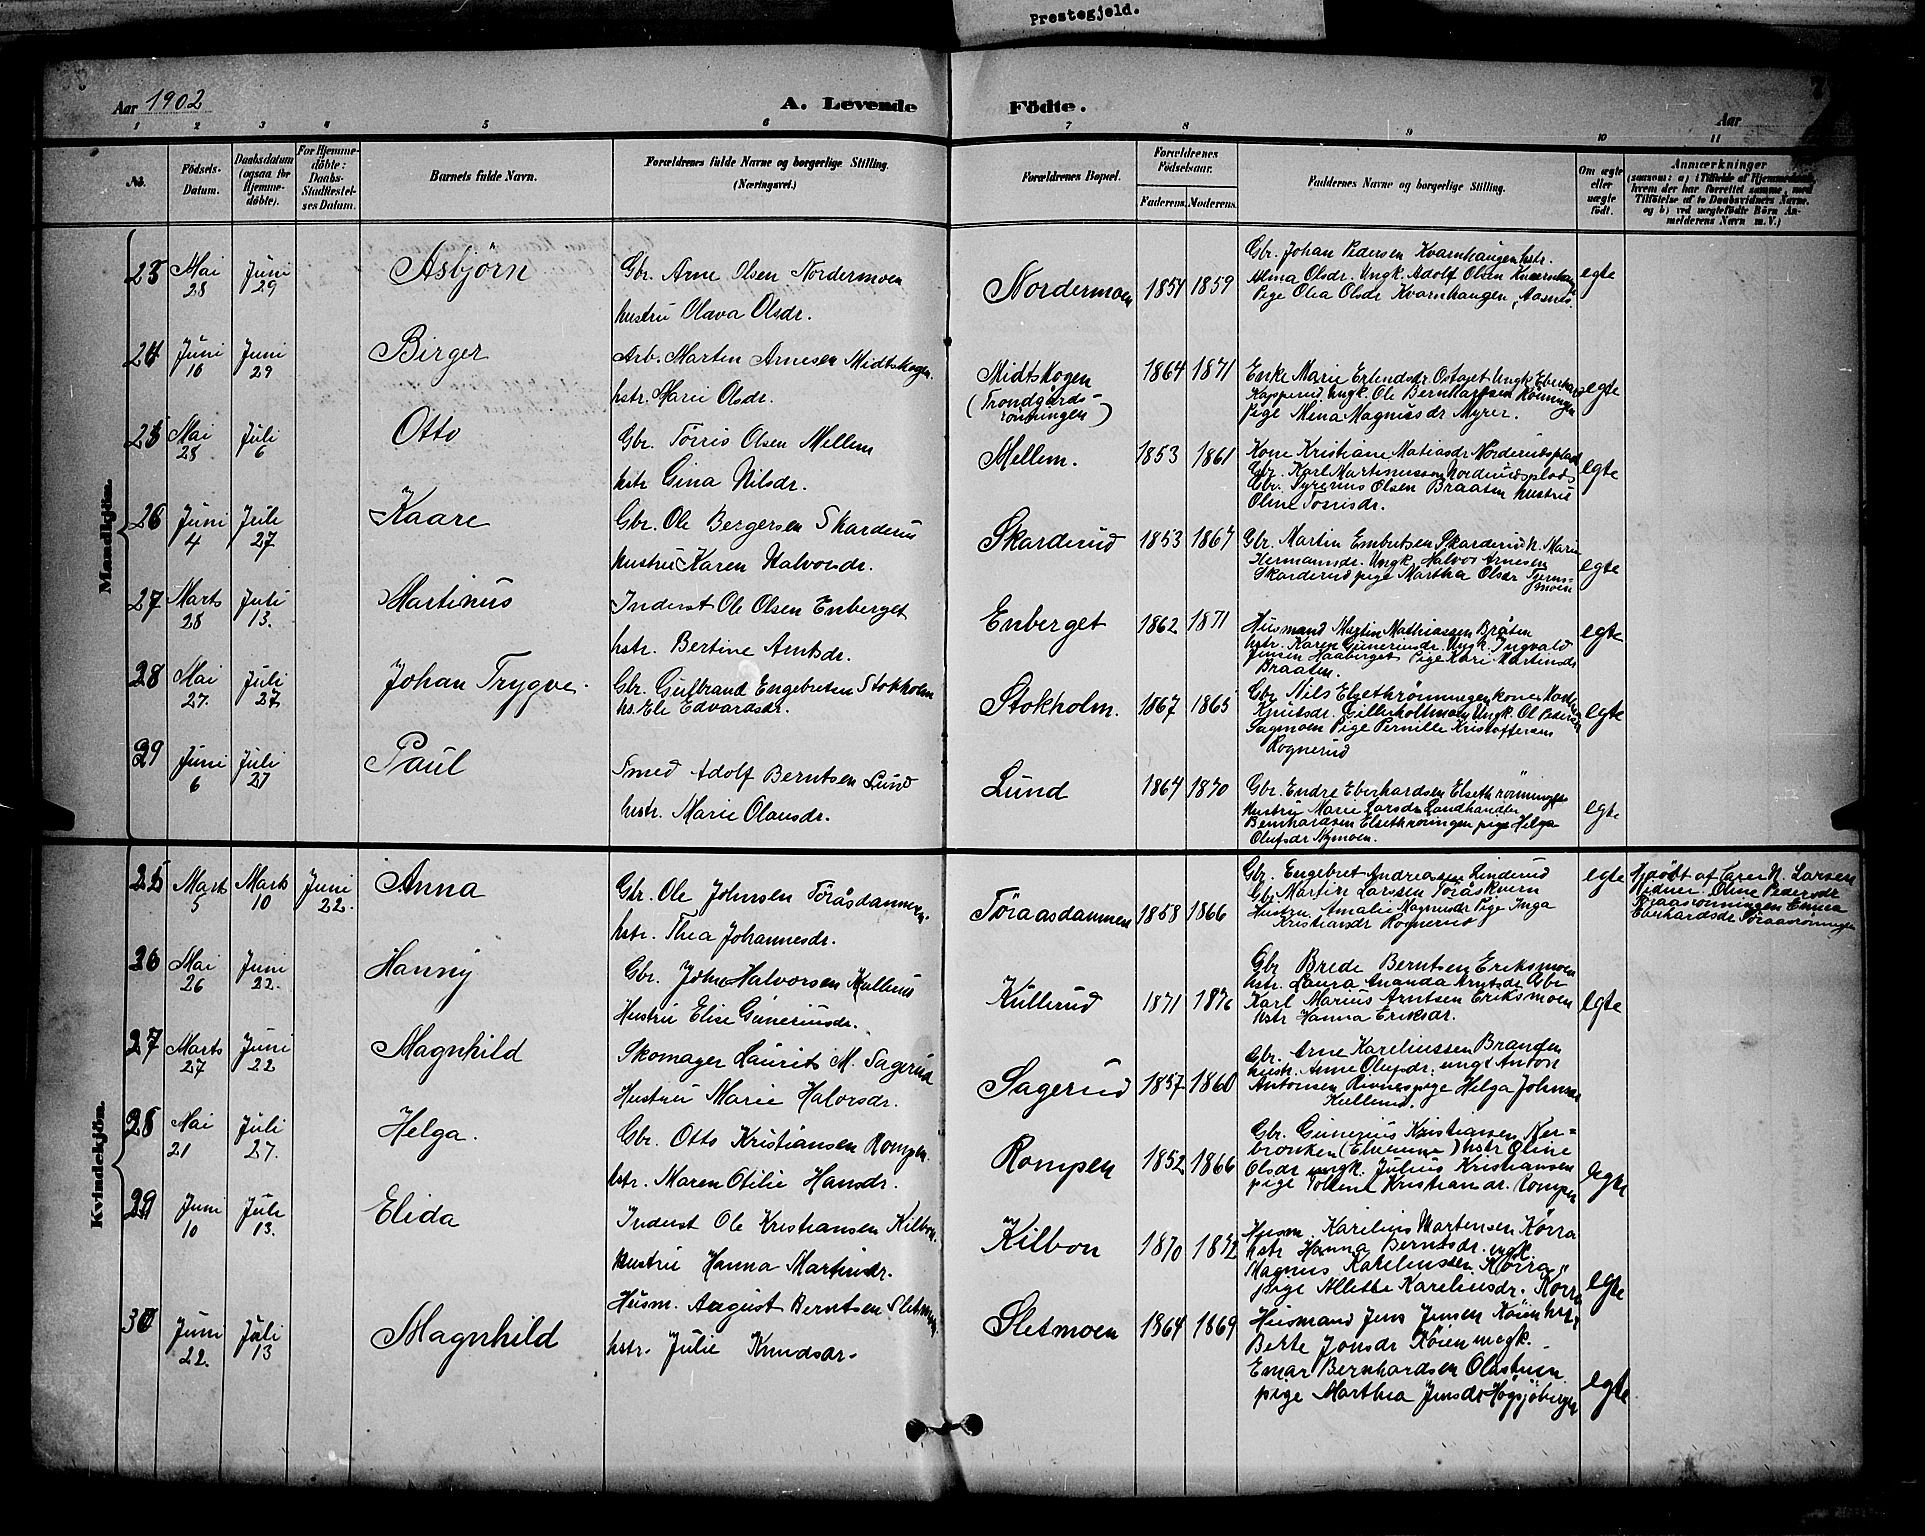 Prestegjeld.
Aar 1902
A. Levende Födte.
Aar
1 2 3 4 5 6 7 8 9 10 11
No.
Födsels-Datum.
Daabsdatum (ogsaa for Hjemme-döbte).
For Hjemme-döbte: Daabs-Stadfæstel-ses Datum.
Barnets fulde Navn.
Forældrenes fulde Navne og borgerlige Stilling. (Næringsvei.)
Forældrenes Bopæl.
Forældrenes Födselsaar.
Faderens. Moderens.
Faddernes Navne og borgerlige Stilling.
Om ægte eller uægte födt.
Anmærkninger
(saasom: a) i Tilfælde af Hjemmedaab,
hvem der har forrettet samme, med
Tilföielse af to Daabsvidners Navne.
og b) ved uægtefödte Börn An-
melderens Navn m. V.)
Mandkjön.
23 Mai 28 Juni 29 Asbjörn
Gbr. Arne Olsen Nordermoen
hustru Olava Olsdr.
Nordermoen 1854 1859
Gbr. Johan Pedersen Kvarnhaugen hstr.
Alma Olsdr. Ungk. Adolf Olsen
Pige Olea Olsdr Kvarnhaugen, Aasnes
egte
24 Juni 16 Juni 29 Birger
Arb. Martin Arnesen Midtskogen.
hstr. Marie Olsdr.
Midtskogen
(Trondgårds-
rönningen)
1864 1871
Enke Marie Erlendsdr. Ungk
Ungk. Ole Bernhardsen Rönningen
pige Mina Magnusdr Myrer.
egte
25 Mai 28 Juli 6 Otto
Gbr. Torris Olsen Mellem
hstr Gina Nilsdr.
Mellem. 1853 1861
Kone Kristiane Matiasdr Norderudsplads
Gbr. Karl Martinussen Norderudsplads
Gbr. Syverinus Olsen Braaten hustru
Oline Torrisdr.
egte
26 Juni 4 Juli 27 Kaare
Gbr. Ole Bergersen Skarderud
hustru Karen Halvorsdr.
Skarderud 1853 1867
Gbr. Martin Embretsen Skarderud h. Marie
Hermansdr. Ungk. Halvor Arnesen
Skarderud pige Martha Olsdr
egte
27 Marts 28 Juli 13. Martinus
Inderst Ole Olsen Enberget
hstr. Bertine Arntsdr.
Enberget 1862 1871
Husmand Martin Mathiassen Bråten
hstr. Karen Guneriusdr. Ungk. Ingvald
Jensen Haaberget Pige Kari Martinsdr
Braaten.
egte
28 Mai 27. Juli 27 Johan Trygve.
Gbr. Gulbrand Engebretsen Stokholm
hs. Eli Edvardsdr.
Stokholm. 1867 1865
Gbr. Nils Elsethrönningen kone
Knutsdr. Ungk. Ol Pedersen
Sagmoen Pige Pernille Kristoffersen
Rognerud
egte
29 Juni 6 Juli 27 Paul
Smed Adolf Berntsen Lund
hstr. Marie Olausdr.
Lund 1864 1870
Gbr. Endre Eberhardsen Elsethrönningen
Hustru Marie Larsdr Landhandler
Bernhardsen Elsethröningen pige Helga
Olufsdr Nymoen.
egte
Kvindekjön.
25 Marts 5 Marts 10 Juni 22. Anna
Gbr. Ole Johnsen Töråsdammen.
hstr. Thea Johannesdr.
Töraasdammen 1858 1866
Gbr. Engebret Andreasen Linderud
Gbr Martin Larssen Töråskvern
Hustru Amalie Magnusdr Pige Inga
Kristiansdr Rognerud
egte
Hjdöbt af Larsen
Vidner: Oline Pedersdr
Emma
Eberhardsdr Töraasröningen
26 Mai 26 Juni 22. Hanny
Gbr. John Halvorsen Kullerud
Hustru Elise Gunerusdr.
Kullerud 1871 1876
Gbr Brede Berntsen Eriksmoen
hstr. Laura Ananda Arntsdr Gbr
Karl Marius Arntsen Eriksmoen
hstr Hanna Eriksdr.
egte
27 Marts 27 Juni 22 Magnhild
Skomager Laurits M. Sagerud
Hustru Marie Halvorsdr.
Sagerud 1857 1860
Gbr. Arne Kareliussen Branden
hustr. Anne Olufsdr. ungk Anton
Antonsen pige Helga Johnsen
Kullerud.
28 Mai 21 Juli 27. Helga.
Gbr. Otto Kristiansen Rompen.
hstr. Maren Otilie Hansdr.
Rompen 1852 1866
Gbr. Gunerius Kristiansen Ner=
bronken (Elverum) hstr Oline
Olsdr ungk. Julius Kristiansen
pige Kristiansdr. Rompen
egte
29 Juni 10 Juli 13. Elida
Inderst Ole Kristiansen Kilbon.
Hustru Hanna Martinsdr.
Kilbon 1870 1872
Husm. Karelius Martensen Körra
hstr Hanna Berntsdr. ungk.
Magnus Kareliussen Körra
pige Alette Kareliusdr. Körra
egte
30 Juni 22. Juli 13 Magnhild
Husm. August Berntsen Sletmoen.
hstr. Julie Knudsdr.
Sletmoen 1864 1869
Husmand Jens Jensen Köien hstr,
Berte Jonsdr Köien ungk.
Einar Bernhardsen Olastuen
pige Marthea Jensdr Högsjöberget
egte